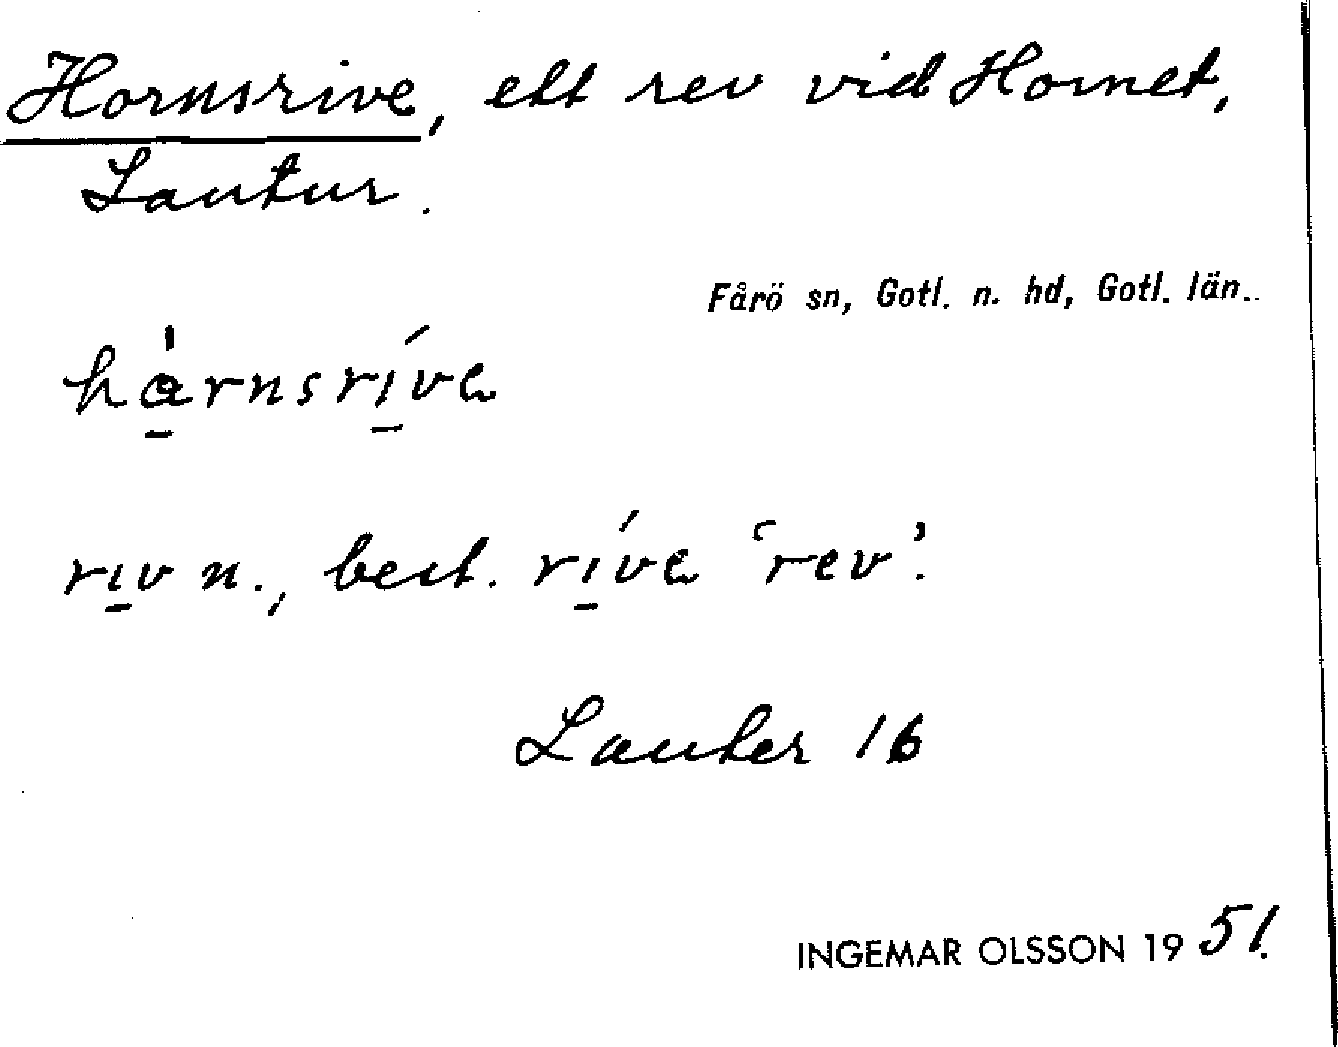 Hornsrive, ett rev vid Hornet,
Lautur.
Fårö sn, Gotl. n. hd, Gotl. län..
rıv n., best. rı́vе 'rev'.
Lauter 16
INGEMAR OLSSON 1951.